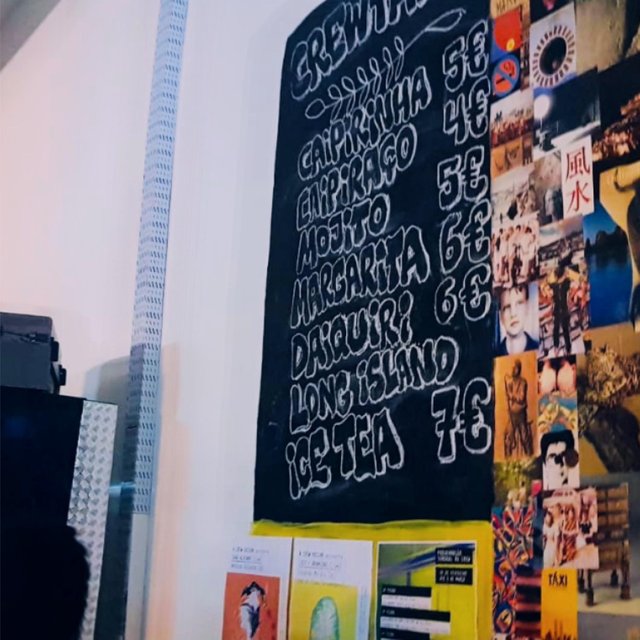 CAIPIRINHA 5€
CAIPIRAÇO 4€
MOJITO 5€
MARGARITA 6€
DAIQUIRI 6€
LONG ISLAND
ICE TEA 7€
風水
TÁXI